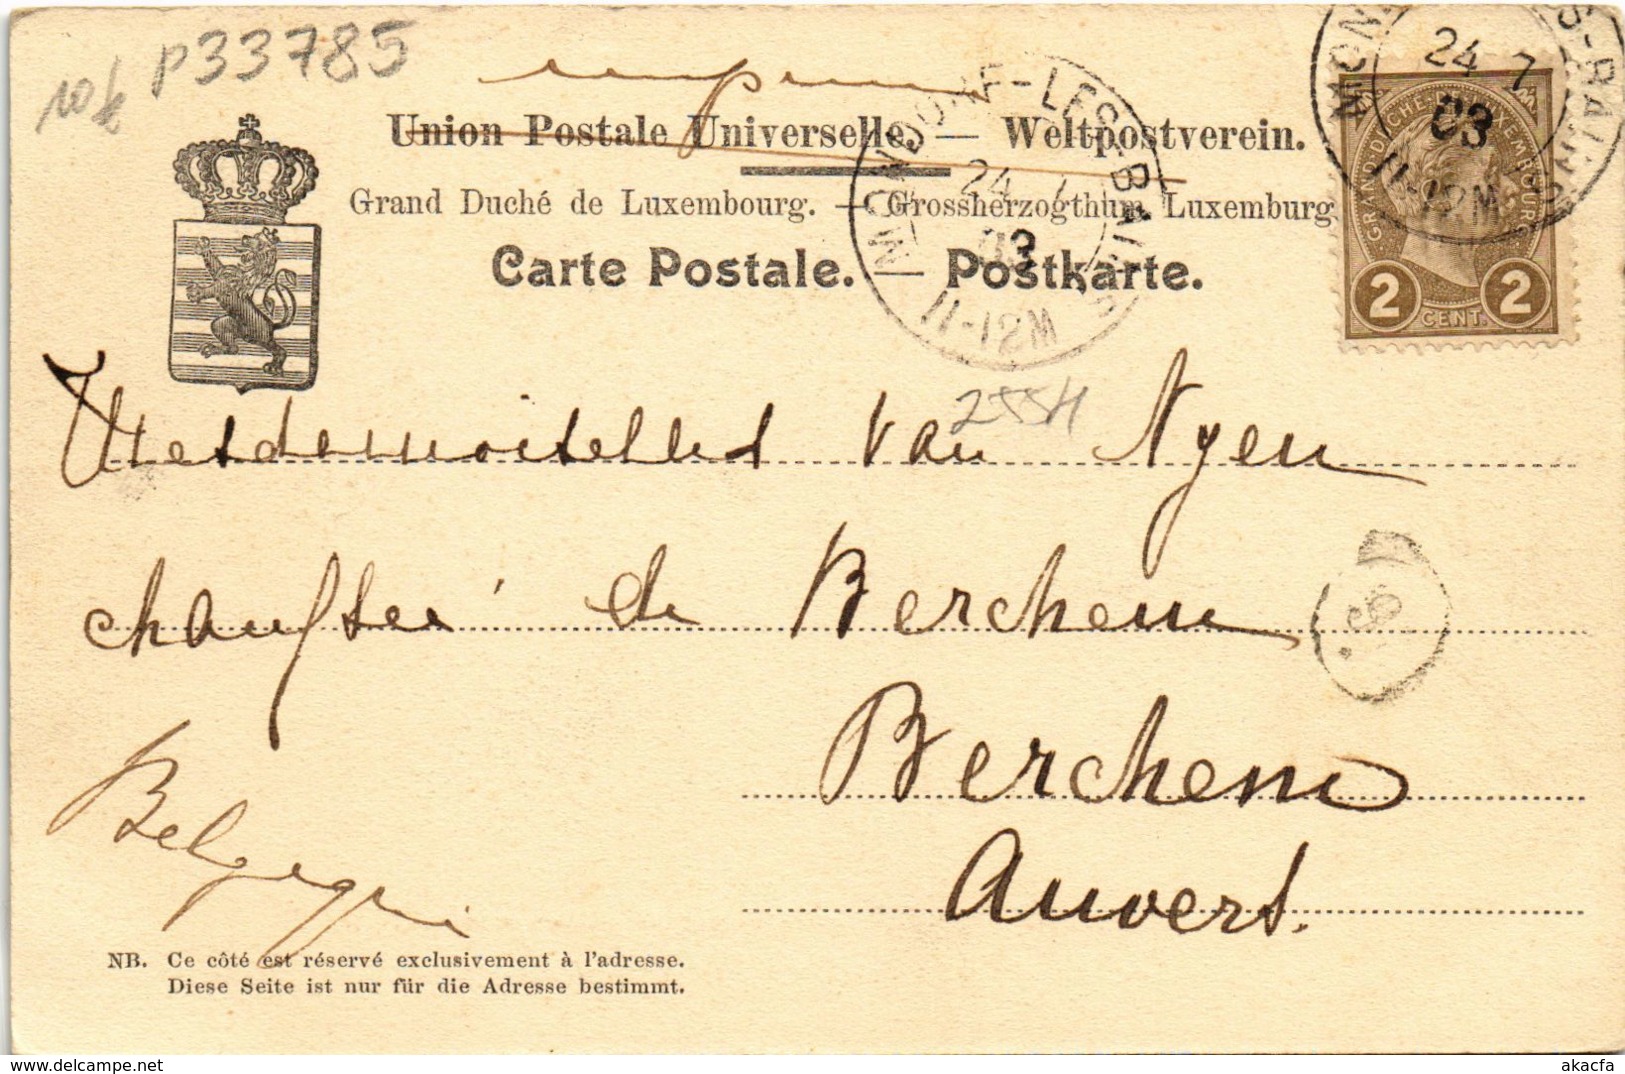 10k p33785
imprimé
Union Postale Universelle. — Weltpostverein.
Grand Duché de Luxembourg. — Grossherzogthum Luxemburg
Carte Postale. — Postkarte.
MONDORF-LES-BAINS
24 7
03
11-12M
MONDORF-LES-BAINS
24 7
03
11-12M
GRAND DUCHE DE LUXEMBOURG
2 CENT. 2
Mesdemoiselles Van Nyen
chaussée de Berchem
Berchem
Anvers.
Belgique
NB. Ce côté est réservé exclusivement à l'adresse.
Diese Seite ist nur für die Adresse bestimmt.
akacfa